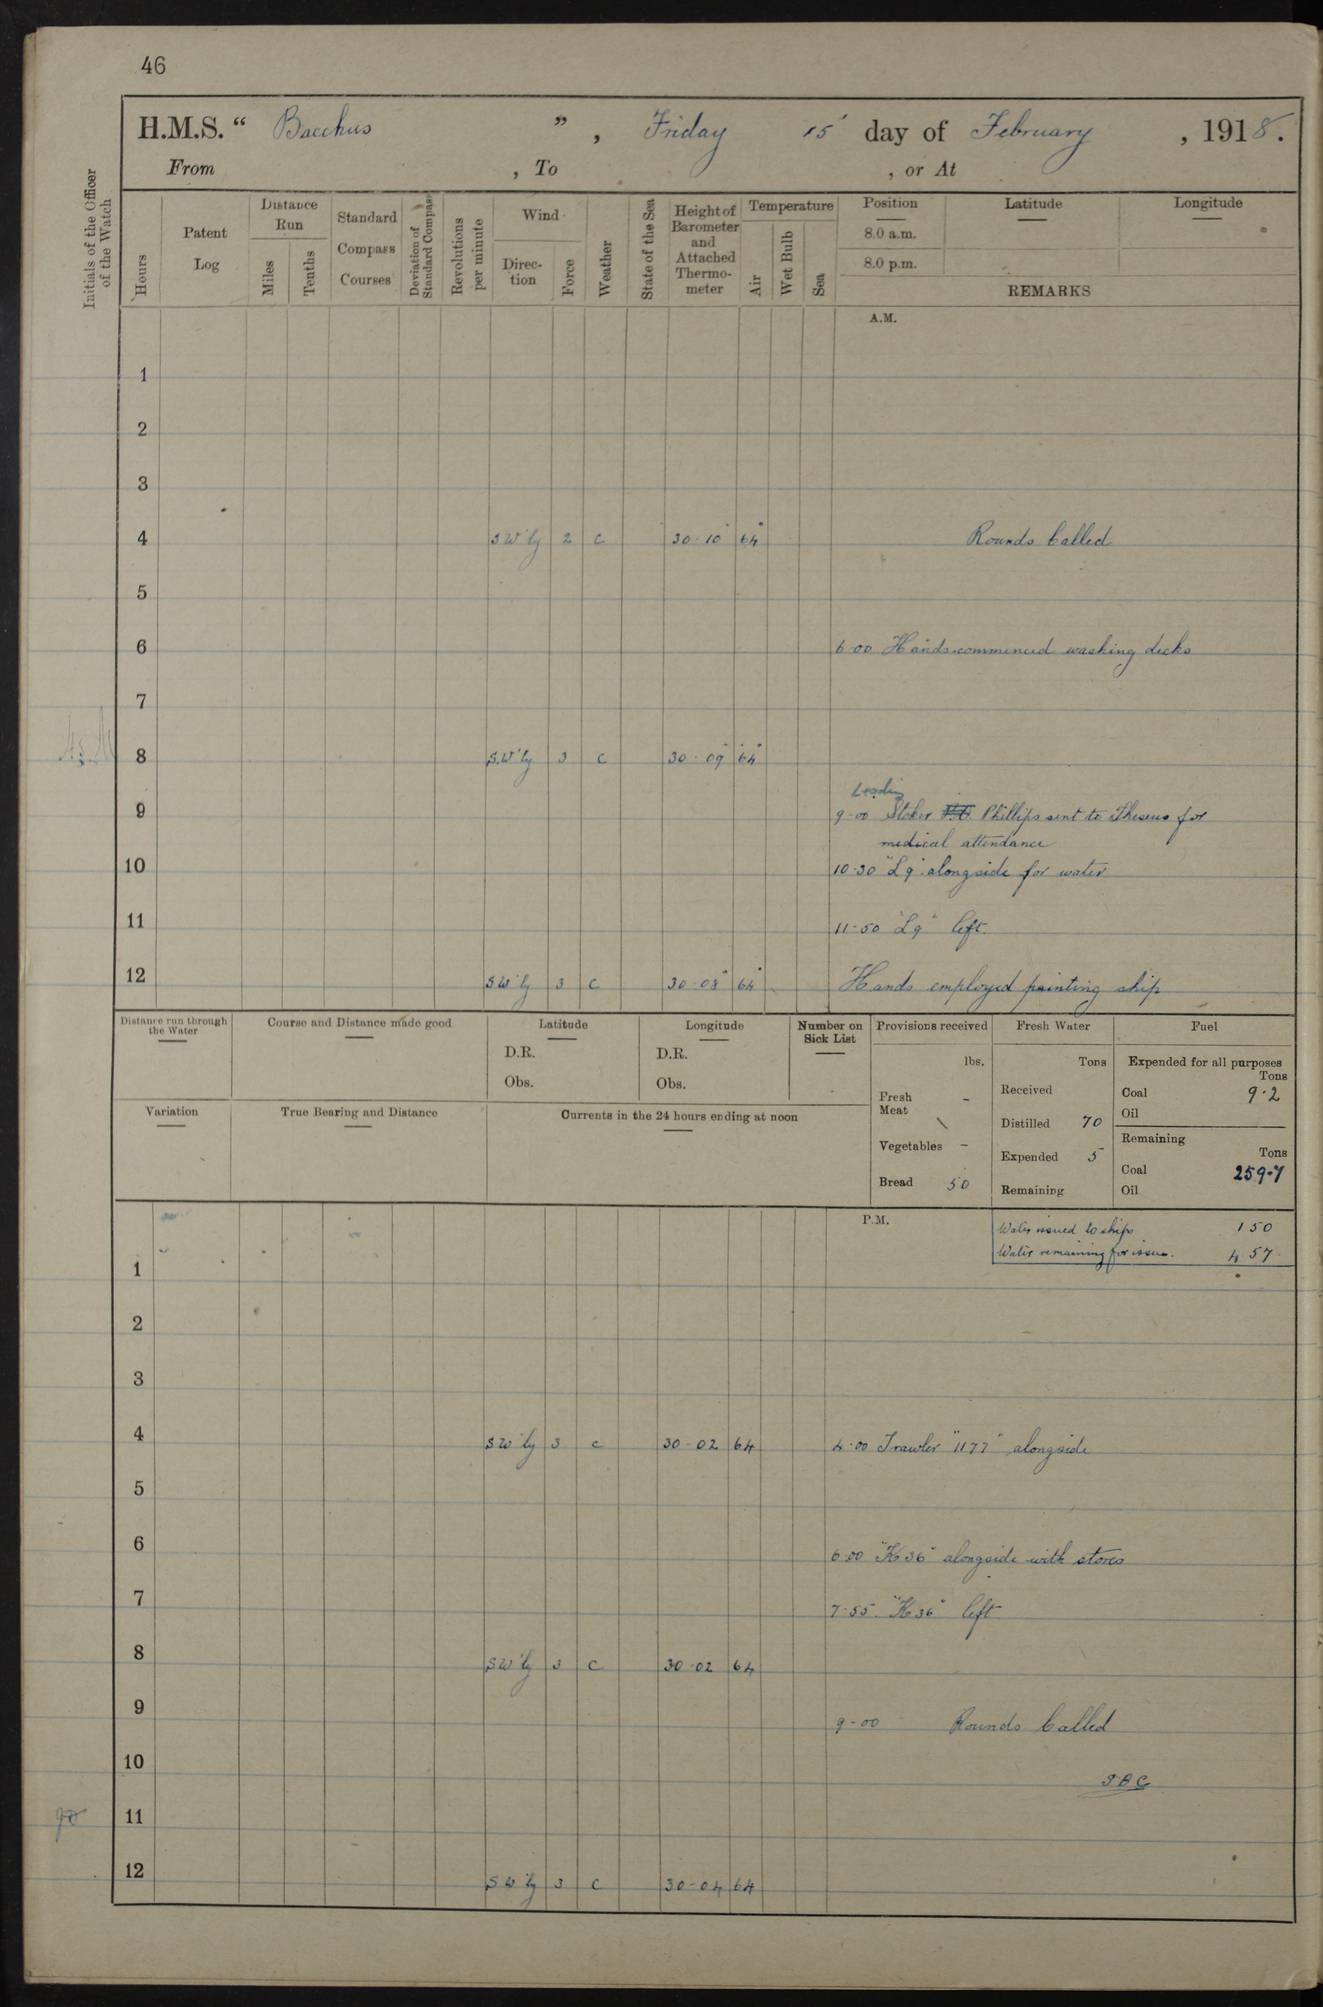 46
H.M.S. “ Bacchus ” , Friday 15 day of February , 1918.
From , To , or At
Initials of the Officer of the Watch
Hours
Patent Log
Distance Run
Miles
Tenths
Standard Compass Courses
Deviation of Standard Compass
Revolutions per minute
Wind
Direc-tion
Force
Weather
State of the Sea
Height of Barometer and Attached Thermo-meter
Temperature
Air
Wet Bulb
Sea
Position
8.0 a.m.
8.0 p.m.
Latitude
Longitude
REMARKS
A.M.
1
2
3
4 SW'ly 2 c 30·10 64° Rounds Called
5
6 6·00 Hands commenced washing decks
7
8 S.W'ly 3 c 30·09 64°
Leading
9 9-00 Stoker P.O. Phillips sent to Theseus for
medical attendance
10 10·30 "L9" alongside for water
11 11·50 "L9" left.
12 SW'ly 3 c 30·08 64° Hands employed painting ship
Distance run through the Water
Course and Distance made good
Latitude
D.R.
Obs.
Longitude
D.R.
Obs.
Number on Sick List
Provisions received
lbs.
Fresh Meat -
Vegetables -
Bread 50
Fresh Water
Tons
Received
Distilled 70
Expended 5
Remaining
Fuel
Expended for all purposes
Tons
Coal 9·2
Oil
Remaining
Tons
Coal 259·7
Oil
Variation
True Bearing and Distance
Currents in the 24 hours ending at noon
P.M.
Water issued to ships 150
Water remaining for issue. 457
1
2
3
4 SW'ly 3 c 30-02 64 4·00 Trawler "1177" alongside
5
6 6·00 "K36" alongside with stores
7 7·55. "K36" left
8 SW'ly 3 c 30·02 64
9 9-00 Rounds Called
10
11
12 SW'ly 3 c 30-04 64